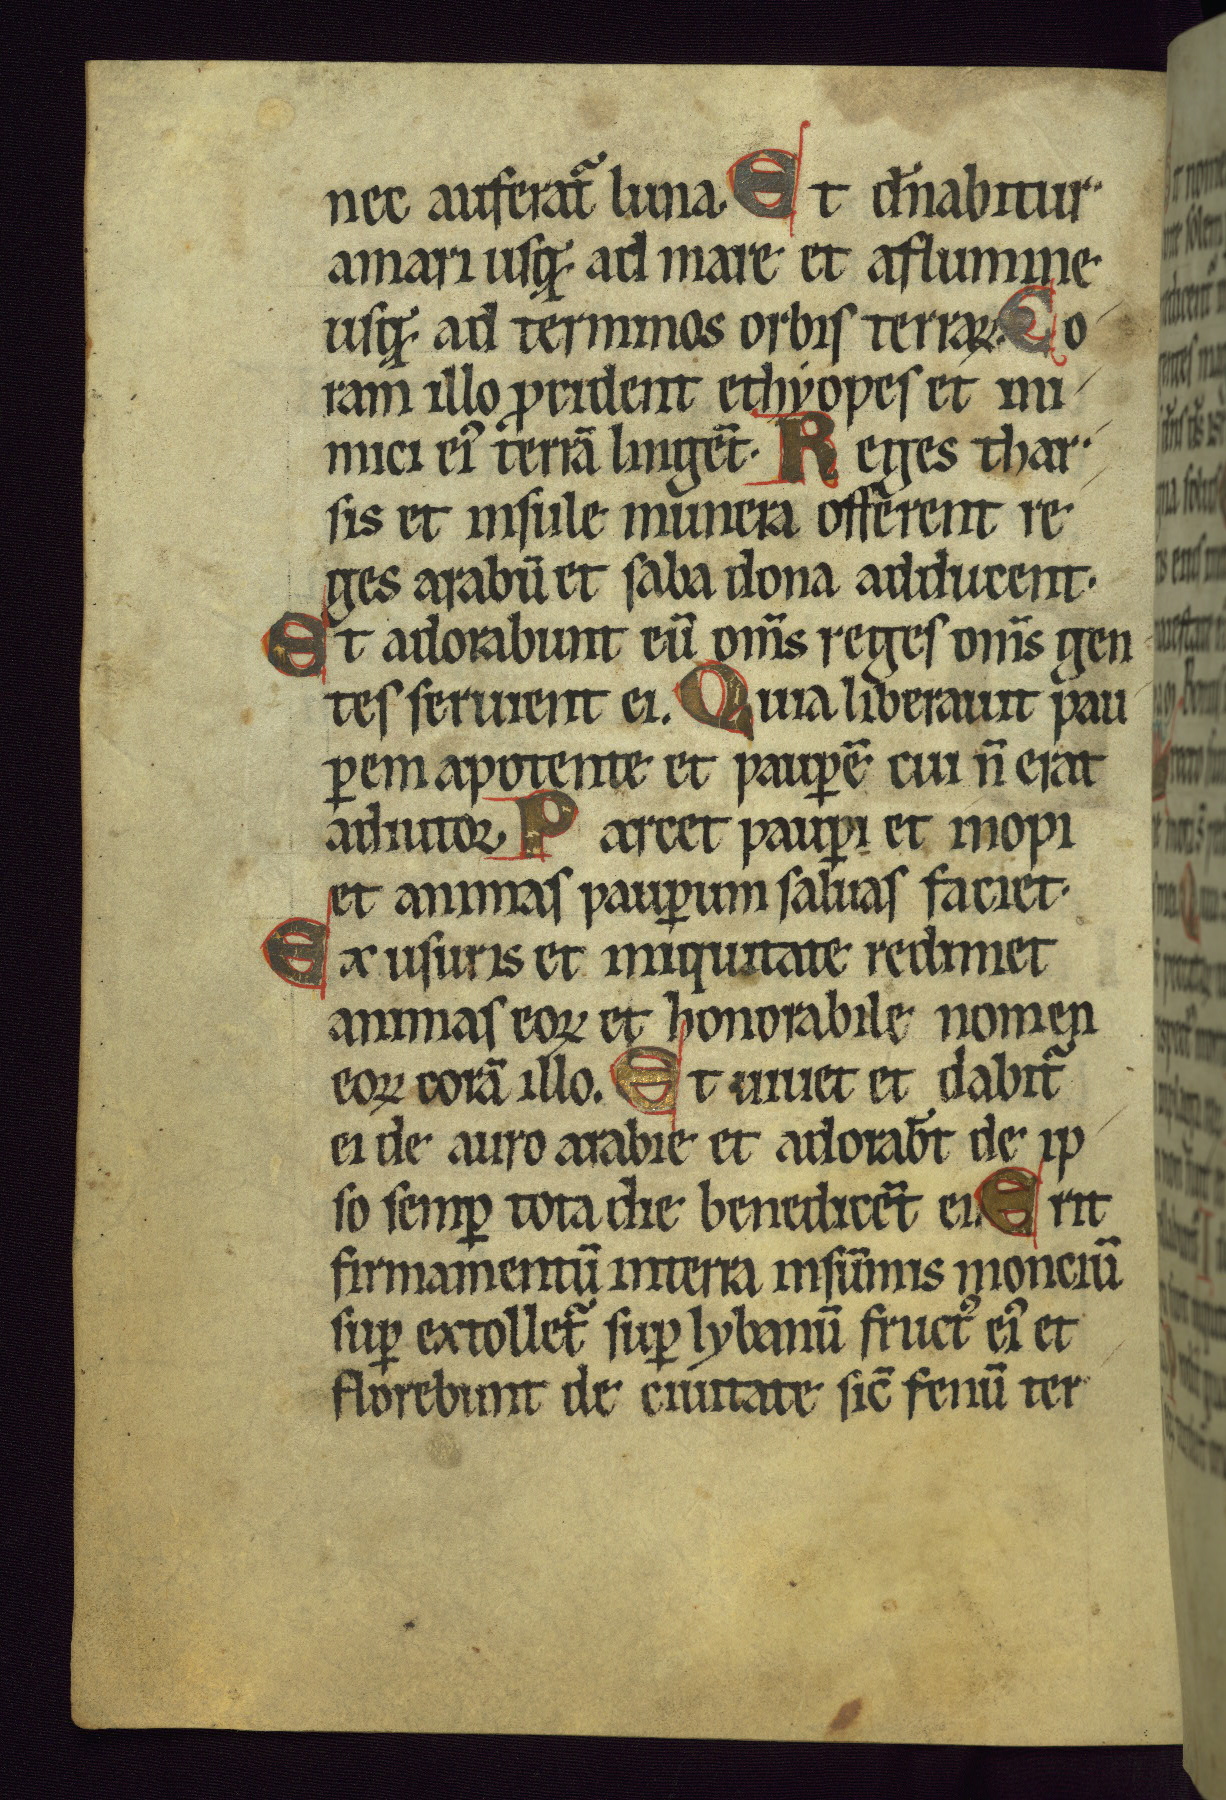 nec auferat᷑ luna. Et dn̄abitur
amari usq; ad mare et aflumine
usq; ad terminos orbis terraꝝ. Co
ram illo ꝓcident ethyopes et ini
mici ei᷒ terrā lingēt. Reges thar
sis et insule munera offerent re
ges arabū et saba dona adducent.
Et adorabunt eū om̄s reges om̄s gen
tes seruient ei. Quia liberauit pau
ꝑem apotente et pauꝑē cui n̄ erat
adiutor. Parcet pauꝑi et inopi
et animas pauꝑum saluas faciet.
Ex usuris et iniquitate redimet
animas eoꝝ et honorabile nomen
eoꝝ corā illo. Et uiuet et dabit᷑
ei de auro arabie et adorab̄t de ip
so semꝑ tota die benedicēt ei. Erit
firmamentū interra insūmis monciū
suꝑ extollet᷑ suꝑ lybanū fruct᷒ ei᷒ et
florebunt de ciuitate sic̄ fenū ter